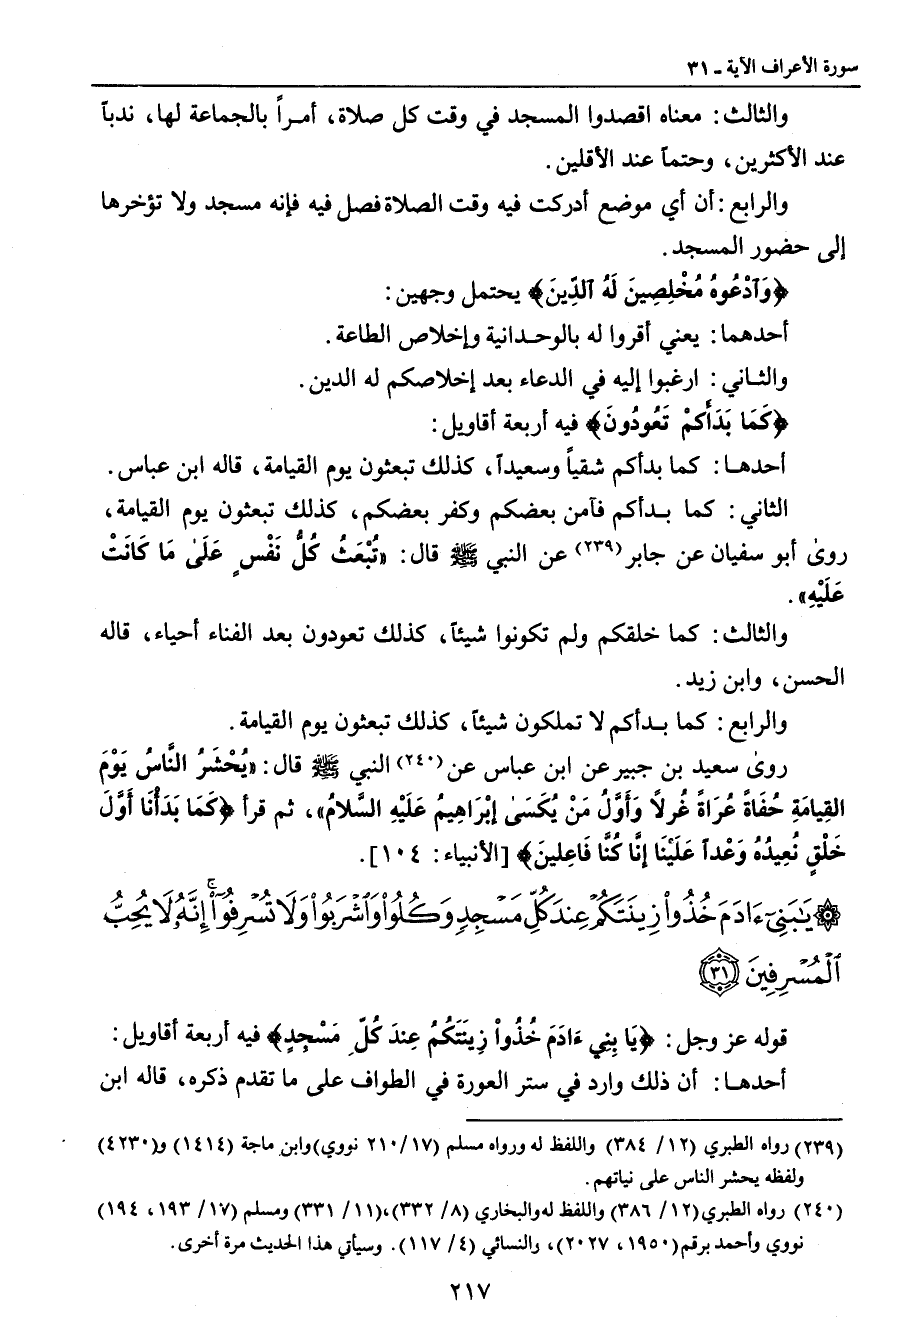 سورة الأعراف الآية - ٣١
والثالث: معناه اقصدوا المسجد في وقت كل صلاة، أمراً بالجماعة لها، ندباً
عند الأكثرين، وحتماً عند الأقلين.
والرابع: أن أي موضع أدركت فيه وقت الصلاة فصل فيه فإنه مسجد ولا تؤخرها
إلى حضور المسجد.
﴿وَآدْعُوهُ مُخْلِصِينَ لَهُ آلدِّينَ﴾ يحتمل وجهين:
أحدهما: يعني أقروا له بالوحدانية وإخلاص الطاعة.
والثاني: ارغبوا إليه في الدعاء بعد إخلاصكم له الدين.
﴿كَمَا بَدَأَكُمْ تَعُودُونَ﴾ فيه أربعة أقاويل:
أحدها: كما بدأكم شقياً وسعيداً، كذلك تبعثون يوم القيامة، قاله ابن عباس.
الثاني: كما بدأكم فآمن بعضكم وكفر بعضكم، كذلك تبعثون يوم القيامة،
روىٰ أبو سفيان عن جابر (٢٣٩) عن النبي ﷺ قال: «تُبْعَثُ كُلُّ نَفْسٍ عَلَىٰ مَا كَانَتْ
عَلَيْهِ».
والثالث: كما خلقكم ولم تكونوا شيئاً، كذلك تعودون بعد الفناء أحياء، قاله
الحسن، وابن زيد.
والرابع: كما بدأكم لا تملكون شيئاً، كذلك تبعثون يوم القيامة.
روىٰ سعيد بن جبير عن ابن عباس عن (٢٤٠) النبي ﷺ قال: «يُحْشَرُ النَّاسُ يَوْمَ
القِيَامَةِ حُفَاةً عُرَاةً غُرلًا وَأَوَّلُ مَنْ يُكْسَىٰ إِبْرَاهِيمُ عَلَيْهِ السَّلامُ»، ثم قرأ ﴿كَمَا بَدَأْنَا أَوَّلَ
خَلْقٍ نُعِيدُهُ وَعْداً عَلَيْنَا إِنَّا كُنَّا فَاعِلينَ﴾ [الأنبياء: ١٠٤].
۞ يَٰبَنِيٓ ءَادَمَ خُذُواْ زِينَتَكُمْ عِندَ كُلِّ مَسْجِدٍ وَكُلُواْ وَٱشْرَبُواْ وَلَا تُسْرِفُوٓاْۚ إِنَّهُۥ لَا يُحِبُّ
ٱلْمُسْرِفِينَ ٣١
قوله عز وجل: ﴿يَا بِنِي ءَادَمَ خُذُواْ زِينَتَكُمُ عِندَ كُلِّ مَسْجِدٍ﴾ فيه أربعة أقاويل:
أحدها: أن ذلك وارد في ستر العورة في الطواف على ما تقدم ذكره، قاله ابن
(٢٣٩) رواه الطبري (١٢/ ٣٨٤) واللفظ له ورواه مسلم (١٧/ ٢١٠ نووي) وابن ماجة (١٤١٤) و(٤٢٣٠)
ولفظه يحشر الناس على نياتهم.
(٢٤٠) رواه الطبري (١٢/ ٣٨٦) واللفظ له والبخاري (٨/ ٣٣٢)، (١١/ ٣٣١) ومسلم (١٧/ ١٩٣، ١٩٤)
نووي وأحمد برقم (١٩٥٠، ٢٠٢٧)، والنسائي (٤/ ١١٧). وسيأتي هذا الحديث مرة أخرى.
٢١٧